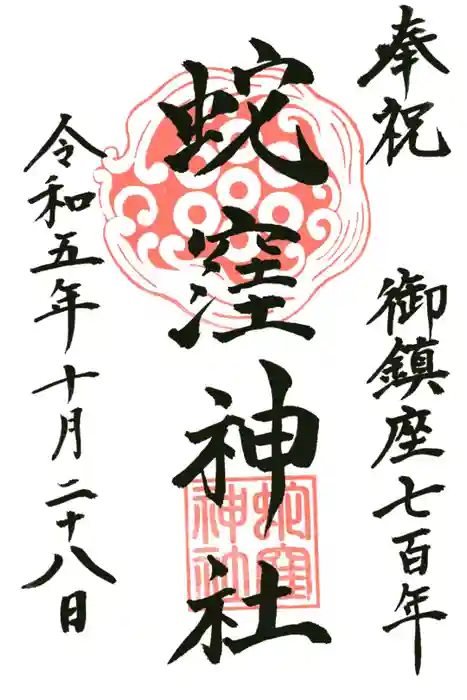 奉祝 御鎮座七百年
蛇窪神社
蛇窪神社
令和五年十月二十八日